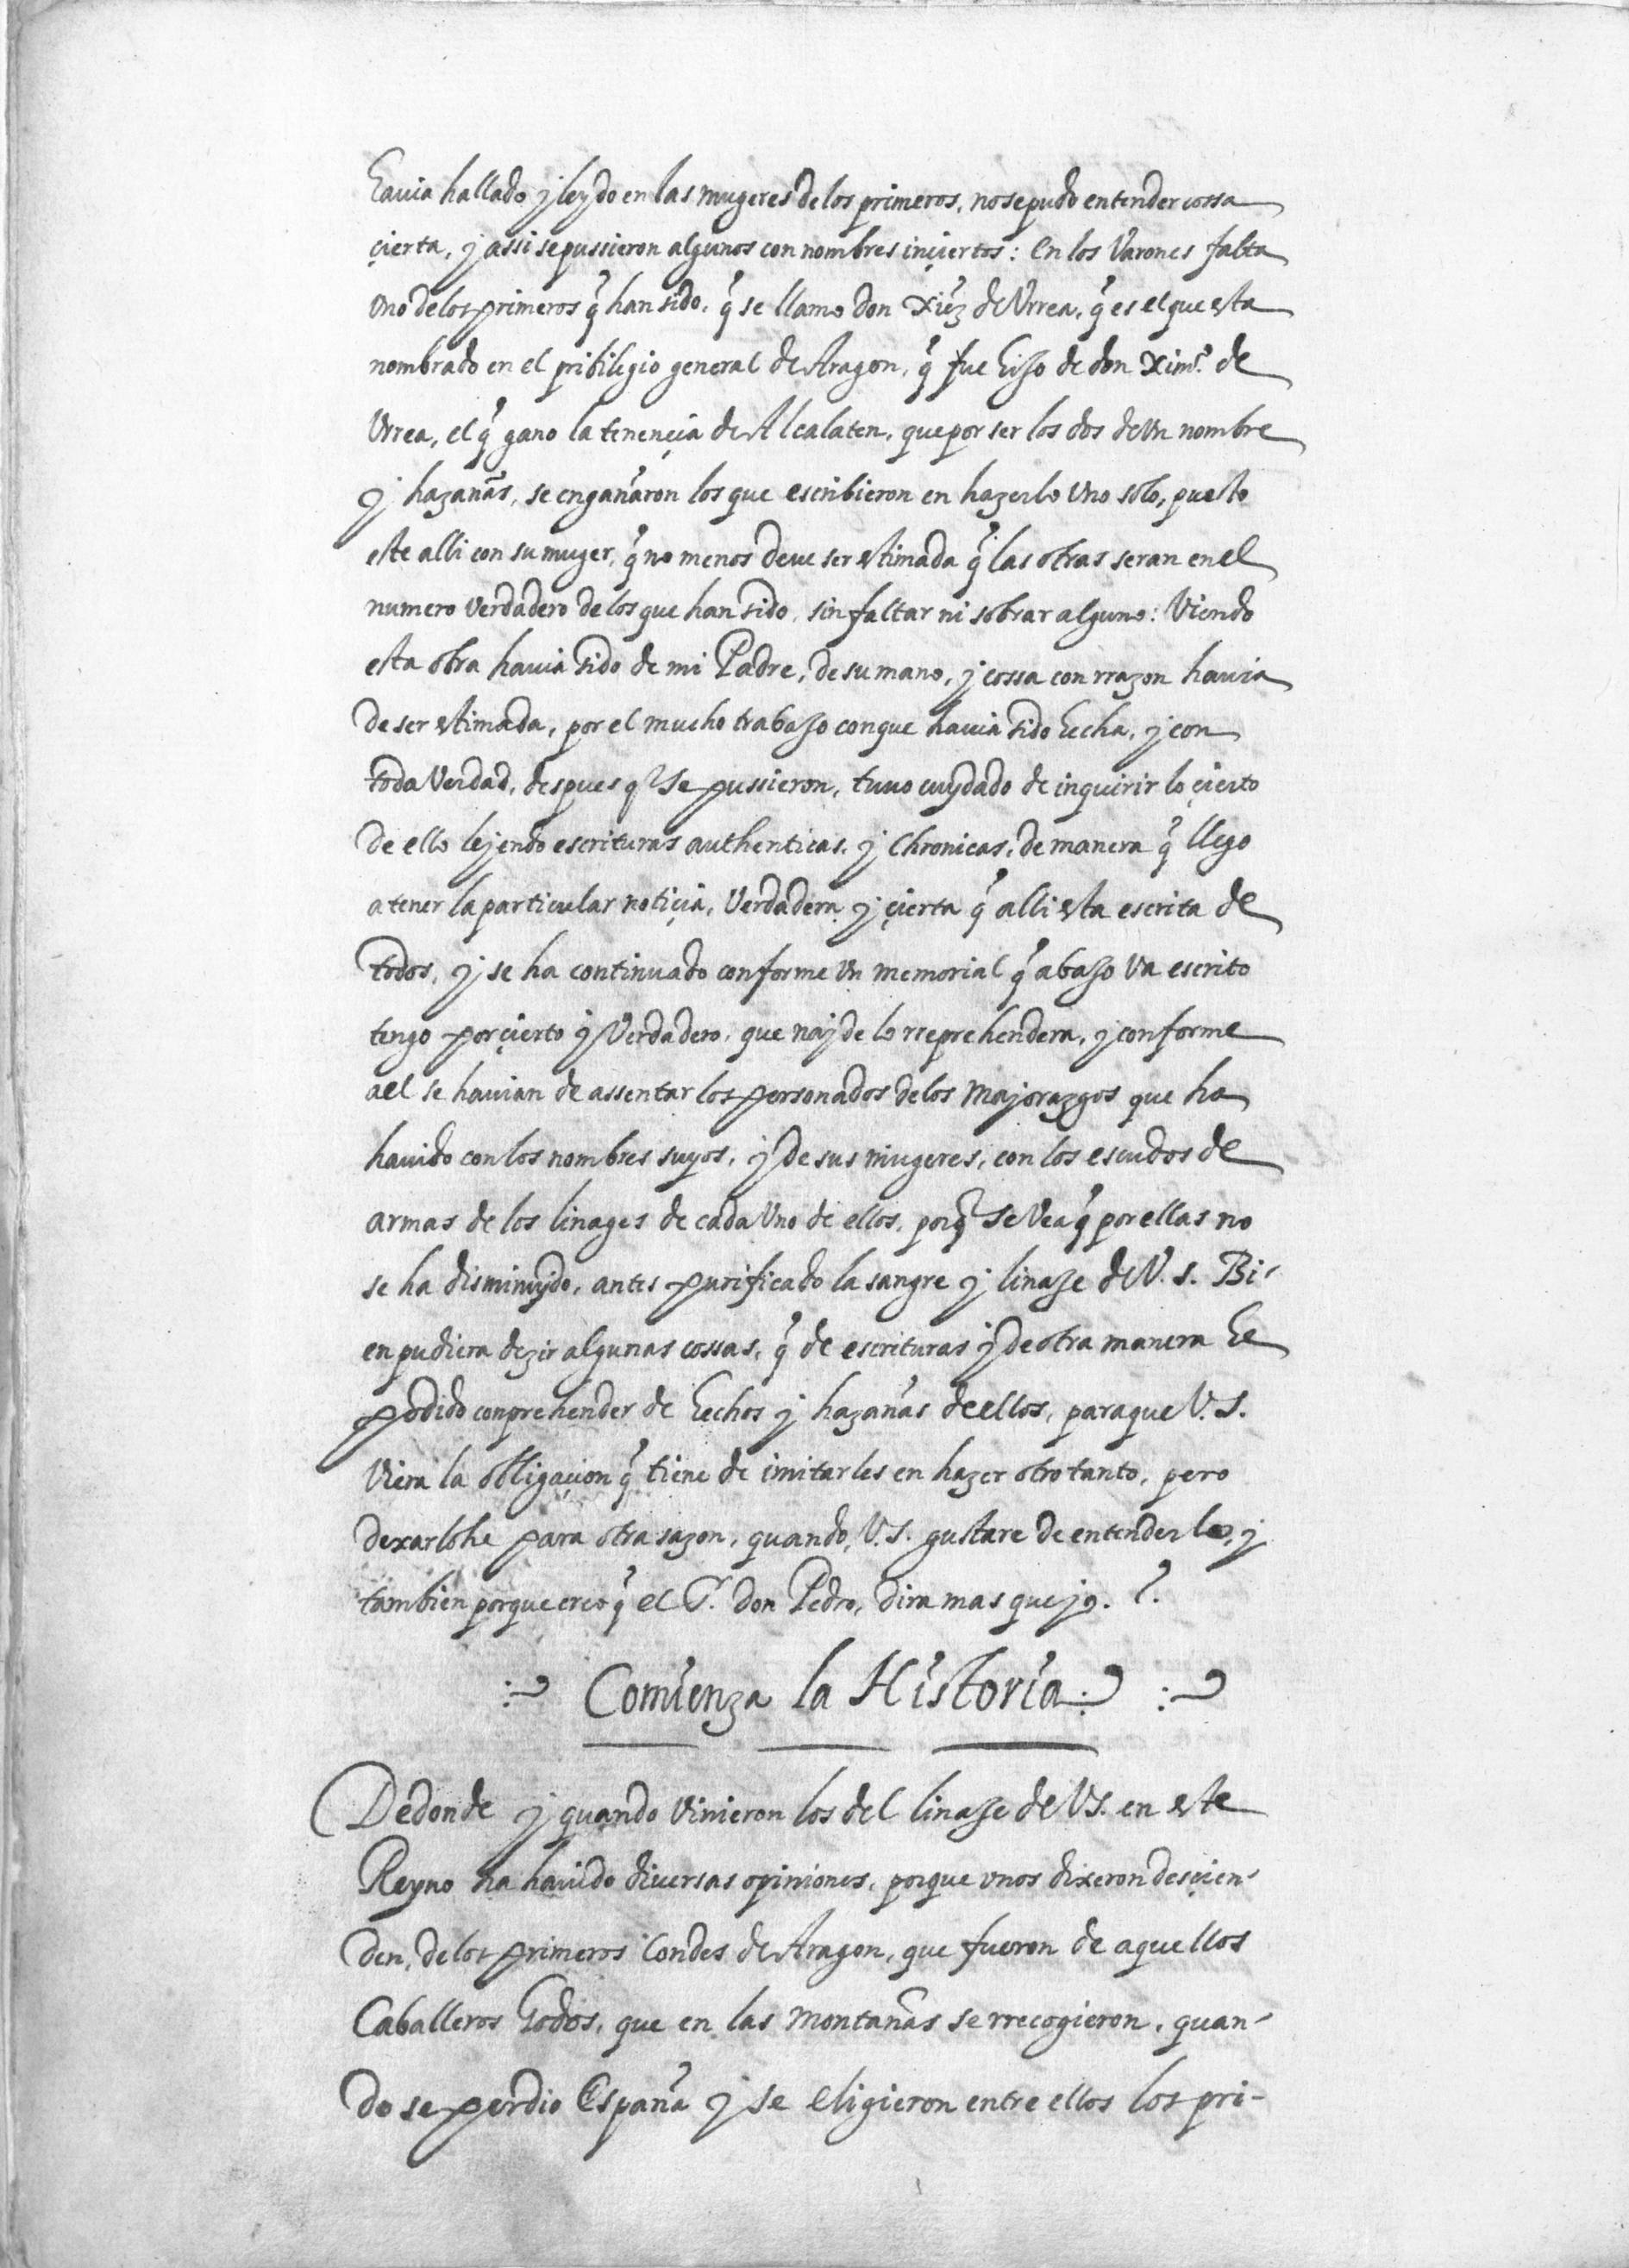 hauia hallado y leydo en las mugeres de los primeros, no se pudo entender cossa
çierta, y assi se pussieron algunos con nombres inçiertos: En los Varones falta
vno de los primeros q̃ han sido, q̃ se llamo don Xiẽz de Vrrea, q̃ es el que esta
nombrado en el pribilegio general de Aragon, q̃ fue hijo de don Ximº de
Vrrea, el q̃ gano la tenençia de Alcalaten, que por ser los dos de vn nombre
y hazañas, se engañaron los que escribieron en hazerlo vno solo, puesto
este alli con su muger, q̃ no menos deue ser estimada q̃ las otras seran en el
numero verdadero de los que han sido, sin faltar ni sobrar alguno: Viendo
esta obra hauia sido de mi Padre, de su mano, y cossa con rrazon hauia
de ser estimada, por el mucho trabajo con que hauia sido hecha, y con
toda verdad, despues q̃ se pussieron, tuuo cuydado de inquirir lo çierto
de ello leyendo escrituras authenticas, y Chronicas, de manera q̃ llego
a tener la particular notiçia, verdadera y çierta q̃ alli esta escrita de
todos, y se ha continuado conforme vn memorial q̃ abajo va escrito
tengo por çierto y Verdadero, que nayde lo rreprehendera, y conforme
a el se hauian de assentar los personados de los Mayorazgos que ha
hauido con los nombres suyos, y de sus mugeres, con los escudos de
armas de los linages de cada vno de ellos, porq̃ se vea q̃ por ellas no
se ha disminuydo, antes purificado la sangre y linaje de V. S. Bi-
en pudiera dezir algunas cossas, q̃ de escrituras y de otra manera he
podido conprehender de hechos y hazañas de ellos, para que V. S.
viera la obligaçion q̃ tiene de imitarles en hazer otro tanto, pero
dexarlohe para otra sazon, quando, V. S. gustare de entenderlo, y
tambien porque creo q̃ el S. don Pedro, dira mas que yo.
Comienza la Historia
De donde y quando vinieron los del linaje de V S. en este
Reyno ha hauido diuersas opiniones, porque vnos dixeron desçien-
den, de los primeros Condes de Aragon, que fueron de aquellos
Caballeros Godos, que en las Montañas se rrecogieron, quan-
do se perdio España y se eligieron entre ellos los pri-